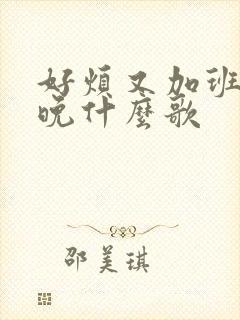 好煩又加班
晚什麼歌
邵美琪